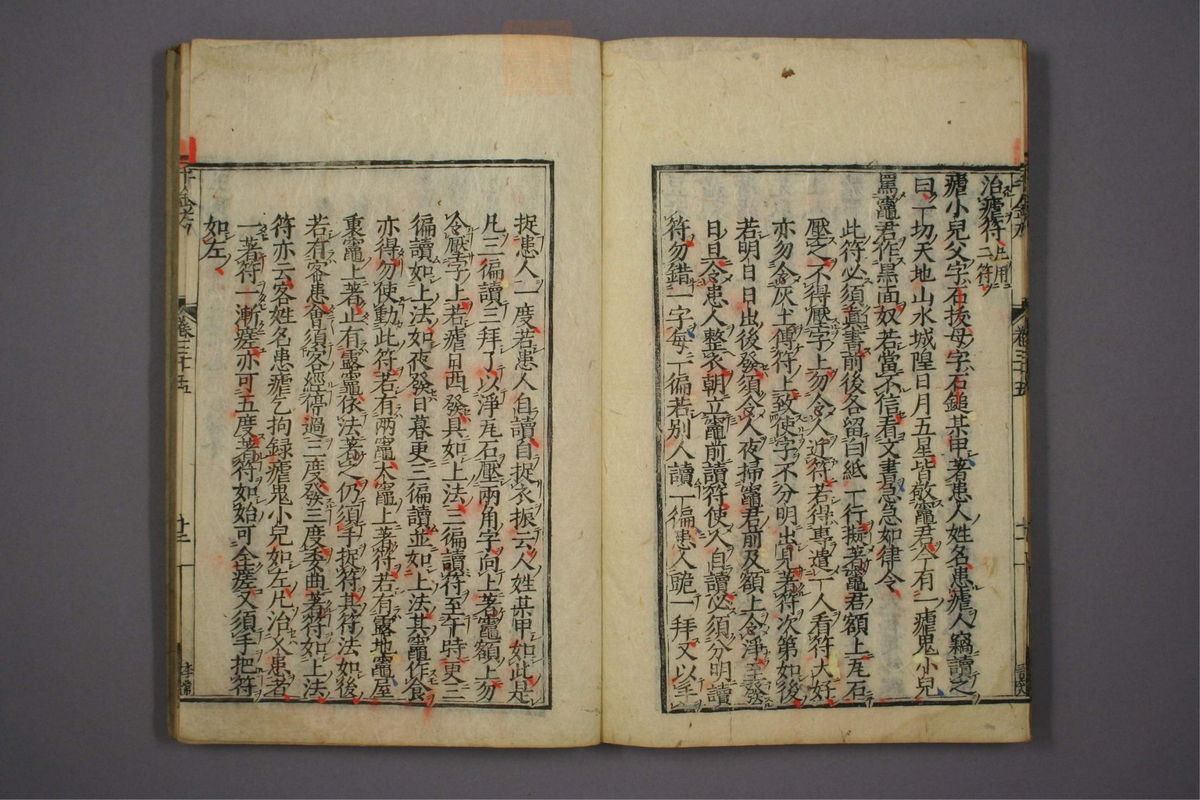 治瘧符 凡用二符
瘧小兒父字石拔母字石鎚某甲著患人姓名患瘧人竊讀之
曰一切天地山水城隍日月五星皆敬竈君今有一瘧鬼小兒
罵竈君作黑面奴若當不信看文書急急如律令
此符必須真書前後各留白紙一行擬著竈君額上瓦石
壓之不得壓字上勿令人近符若得專遣一人看符大好
亦勿令灰土傅符上致使字不分明出見著符次第如後
若明日日出後發須令人夜掃竈君前及額上令淨至發
日旦令患人整衣朝立竈前讀符使人自讀必須分明讀
符勿錯一字每一徧若別人讀一徧患人跪一拜又以手
捉患人一度若患人自讀自捉衣振云人姓某甲如此是
凡三徧讀三拜了以淨瓦石壓兩角字向上著竈額上勿
令壓字上若瘧日西發具如上法三徧讀符至午時更三
徧讀如上法如夜發日暮更三徧讀並如上法其竈作食
亦得勿使動此符若有兩竈大竈上著符若有露地竈屋
裏竈上著止有露竈依法著之仍須手捉符其符法如後
若有客患會須客經停過三度發三度委曲著符如上法
符亦云客姓名患瘧乞拘録瘧鬼小兒如左凡治久患者
一著符一漸瘥亦可五度著符如始可全瘥又須手把符
如左
卷三十五